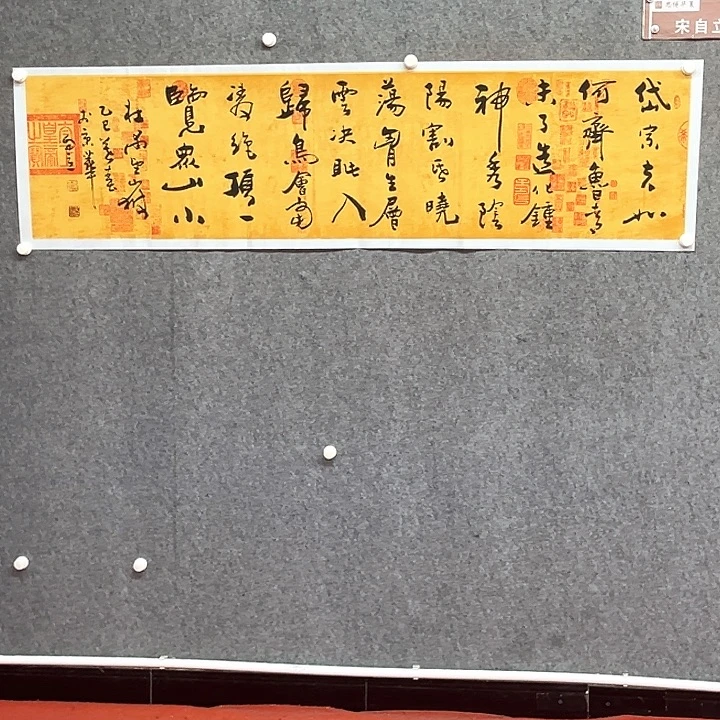 宋自立
岱宗夫如
何齊魯青
未了造化鍾
神秀陰
陽割昏曉
蕩胷生層
雲決眥入
歸鳥會當
凌絕頂一
覽衆山小
杜甫望嶽
乙巳
於京華